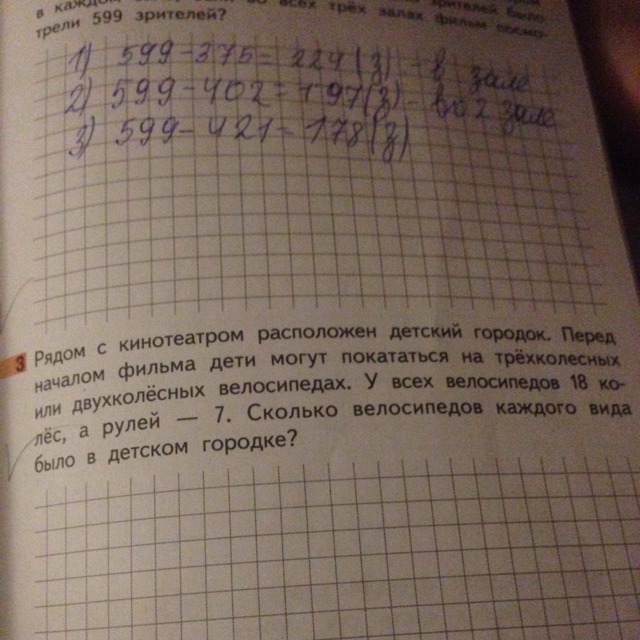 в каждом всех трёх залах фильм посмо-
трели 599 зрителей?
1) 599-375=224(з) - в зале
2) 599-402=197(з) - во 2 зале
3) 599-421=178(з)
3 Рядом с кинотеатром расположен детский городок. Перед
началом фильма дети могут покататься на трёхколесных
или двухколёсных велосипедах. У всех велосипедов 18 ко-
лёс, а рулей — 7. Сколько велосипедов каждого вида
было в детском городке?